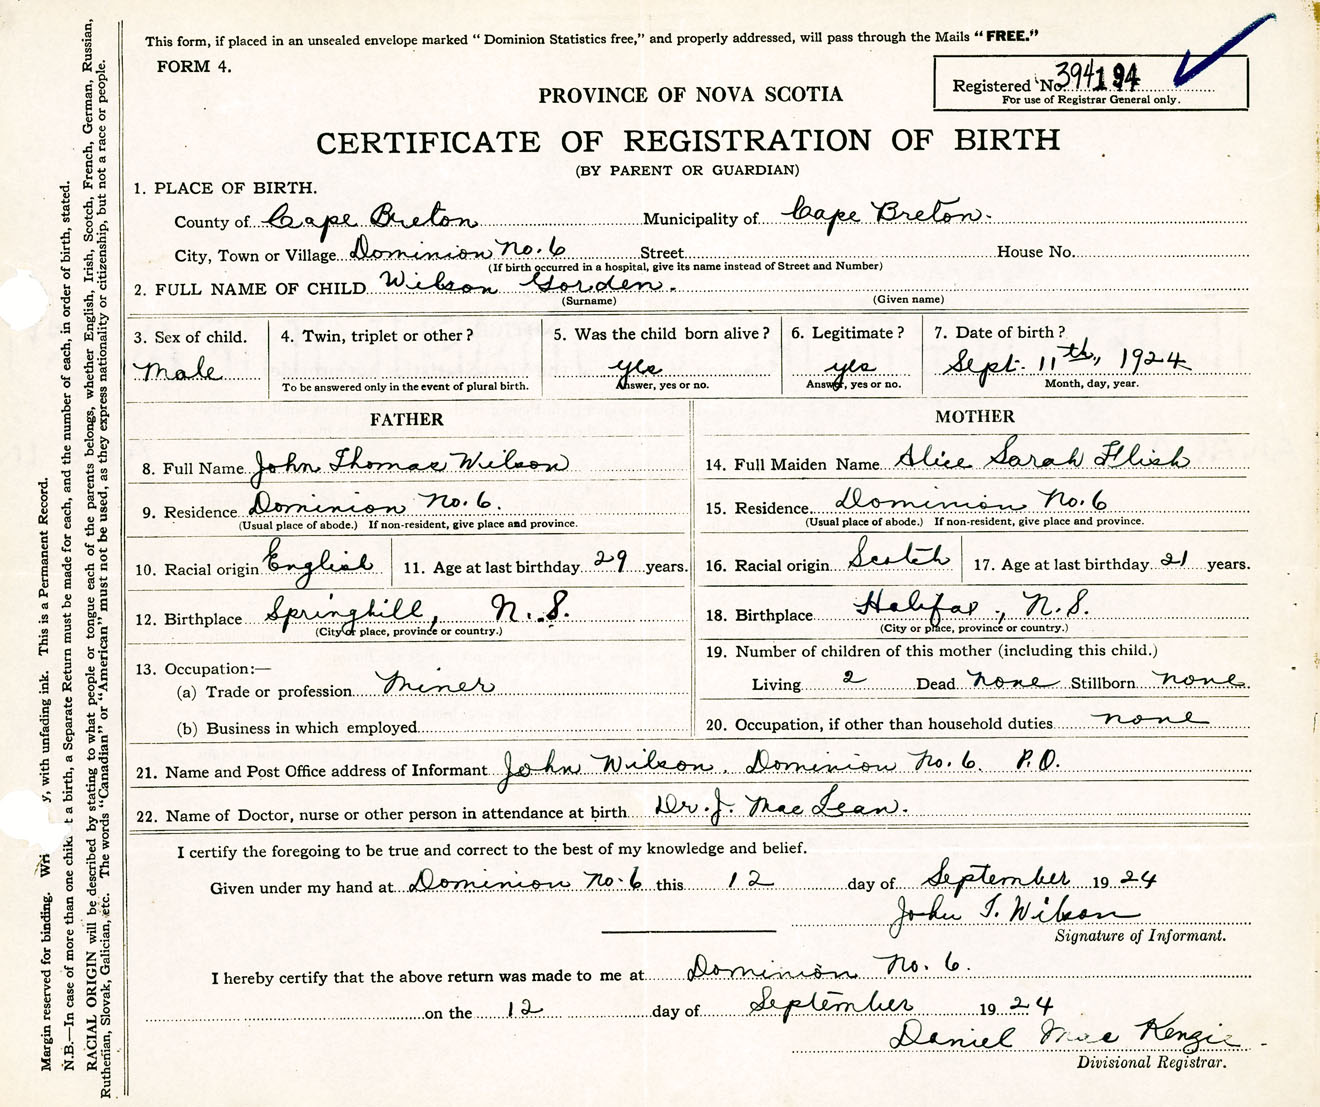 This form, if placed in an unsealed envelope marked “ Dominion Statistics free,” and properly addressed, will pass through the Mails “ FREE.”
FORM 4.
Registered No. 394194
For use of Registrar General only.
PROVINCE OF NOVA SCOTIA
CERTIFICATE OF REGISTRATION OF BIRTH
(BY PARENT OR GUARDIAN)
1. PLACE OF BIRTH.
County of Cape Breton Municipality of Cape Breton.
City, Town or Village Dominion No. 6 Street House No.
(If birth occurred in a hospital, give its name instead of Street and Number)
2. FULL NAME OF CHILD Wilson Gorden.
(Surname) (Given name)
3. Sex of child. 4. Twin, triplet or other ? 5. Was the child born alive ? 6. Legitimate ? 7. Date of birth ?
Male yes yes Sept. 11th, 1924
To be answered only in the event of plural birth. Answer, yes or no. Answer, yes or no. Month, day, year.
FATHER MOTHER
8. Full Name John Thomas Wilson 14. Full Maiden Name Alice Sarah Flish
9. Residence Dominion No. 6. 15. Residence Dominion No. 6
(Usual place of abode.) If non-resident, give place and province. (Usual place of abode.) If non-resident, give place and province.
10. Racial origin English 11. Age at last birthday 29 years. 16. Racial origin Scotch 17. Age at last birthday 21 years.
12. Birthplace Springhill, N.S. 18. Birthplace Halifax, N.S.
(City or place, province or country.) (City or place, province or country.)
13. Occupation:— 19. Number of children of this mother (including this child.)
(a) Trade or profession Miner Living 2 Dead none Stillborn none
(b) Business in which employed 20. Occupation, if other than household duties none
21. Name and Post Office address of Informant John Wilson. Dominion No. 6. P.O.
22. Name of Doctor, nurse or other person in attendance at birth Dr. J. MacLean.
I certify the foregoing to be true and correct to the best of my knowledge and belief.
Given under my hand at Dominion No. 6 this 12 day of September 1924
John T. Wilson
Signature of Informant.
I hereby certify that the above return was made to me at Dominion No. 6.
on the 12 day of September 1924
Daniel MacKenzie
Divisional Registrar.
Margin reserved for binding. y, with unfading ink. This is a Permanent Record.
N.B.—In case of more than one child at a birth, a Separate Return must be made for each, and the number of each, in order of birth, stated.
RACIAL ORIGIN will be described by stating to what people or tongue each of the parents belongs, whether English, Irish, Scotch, French, German, Russian,
Ruthenian, Slovak, Galician, etc. The words “Canadian” or “American” must not be used, as they express nationality or citizenship, but not a race or people.